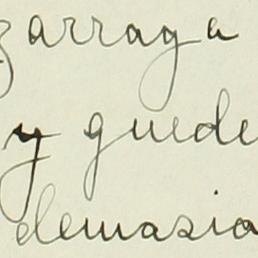 zarraga
y quede
demasia